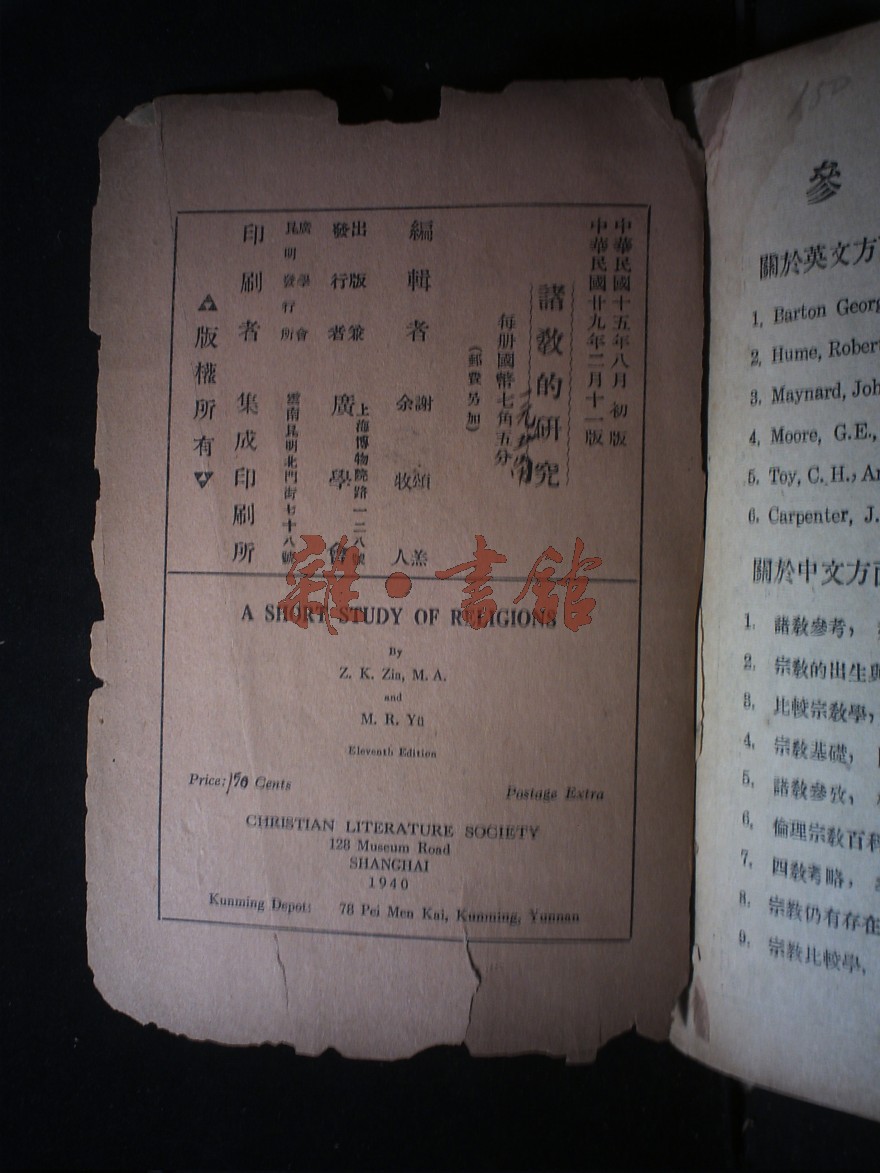 中華民國十五年八月 初版
中華民國廿九年二月十一版
諸教的研究
每册國幣七角五分
(郵費另加)
編輯者 謝頌羔 余牧人
出版兼發行者 廣學會
上海博物院路一二八號
廣學會昆明發行所
雲南昆明北門街七十八號
印刷者 集成印刷所
版權所有
雜·書館
A SHORT STUDY OF RELIGIONS
By
Z. K. Zia, M. A.
and
M. R. Yü
Eleventh Edition
Price: Cents
Postage Extra
CHRISTIAN LITERATURE SOCIETY
128 Museum Road
SHANGHAI
1940
Kunming Depot: 78 Pei Men Kai, Kunming, Yunnan
參
關於英文方
1. Barton Georg
2. Hume, Robert
3. Maynard, Joh
4. Moore, G.E.,
5. Toy, C. H.,
6. Carpenter, J.
關於中文方面
1. 諸敎參考,
2. 宗敎的出生與
3. 比較宗敎學,
4. 宗敎基礎,
5. 諸敎參攷,
6. 倫理宗敎百科
7. 四敎考略,
8. 宗敎仍有存在
9. 宗敎比較學,